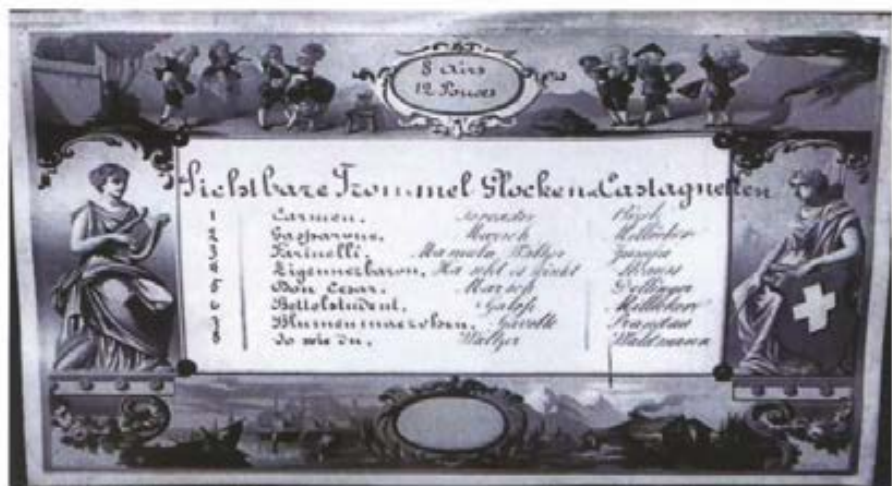 8 Airs
12 Pouces
Sichtbare Trommel Glocken Castagnetten
1 Carmen.
2 Gasparone. Marsch Millöcker
3 Farinelli. Manuela Walzer
4 Zigeunerbaron, Ha seht es winkt Strauss
5 Don Cesar. Marsch Dellinger
6 Bettelstudent. Galop Millöcker
7 Gavotte
8 So wie du. Walzer Waldmann